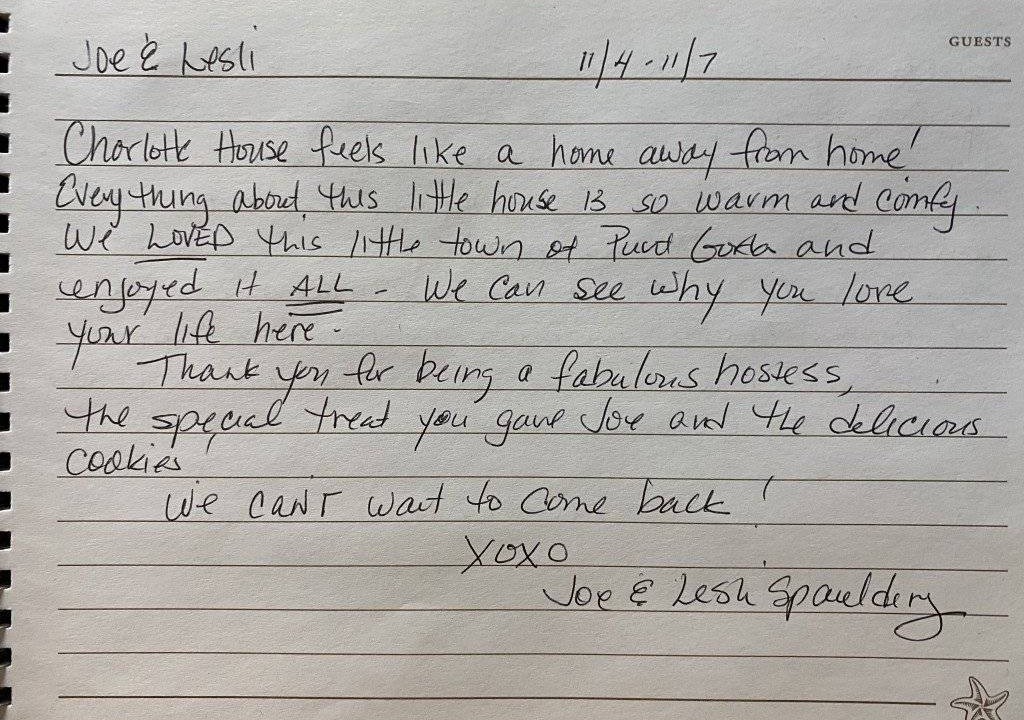 GUESTS
Joe & Lesli 11/4 - 11/7
Charlotte House feels like a home away from home!
Everything about this little house is so warm and comfy.
We LOVED this little town of Punt Gorda and
enjoyed it ALL - We can see why you love
your life here.
Thank you for being a fabulous hostess,
the special treat you gave Joe and the delicious
cookies!
We CAN'T wait to come back!
XOXO
Joe & Lesli Spaulding